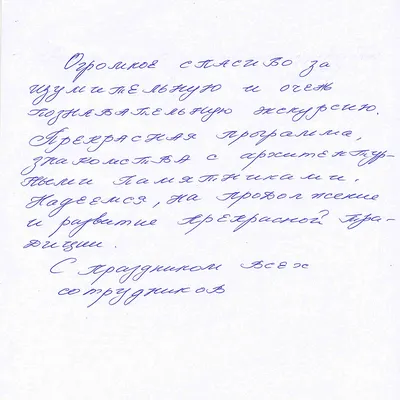 Огромное спасибо за
изумительную и очень
познавательную экскурсию.
Прекрасная программа,
знакомства с архитектур-
ными памятниками.
Надеемся, на продолжение
и развитие прекрасной тра-
диции.
С праздником всех
сотрудников